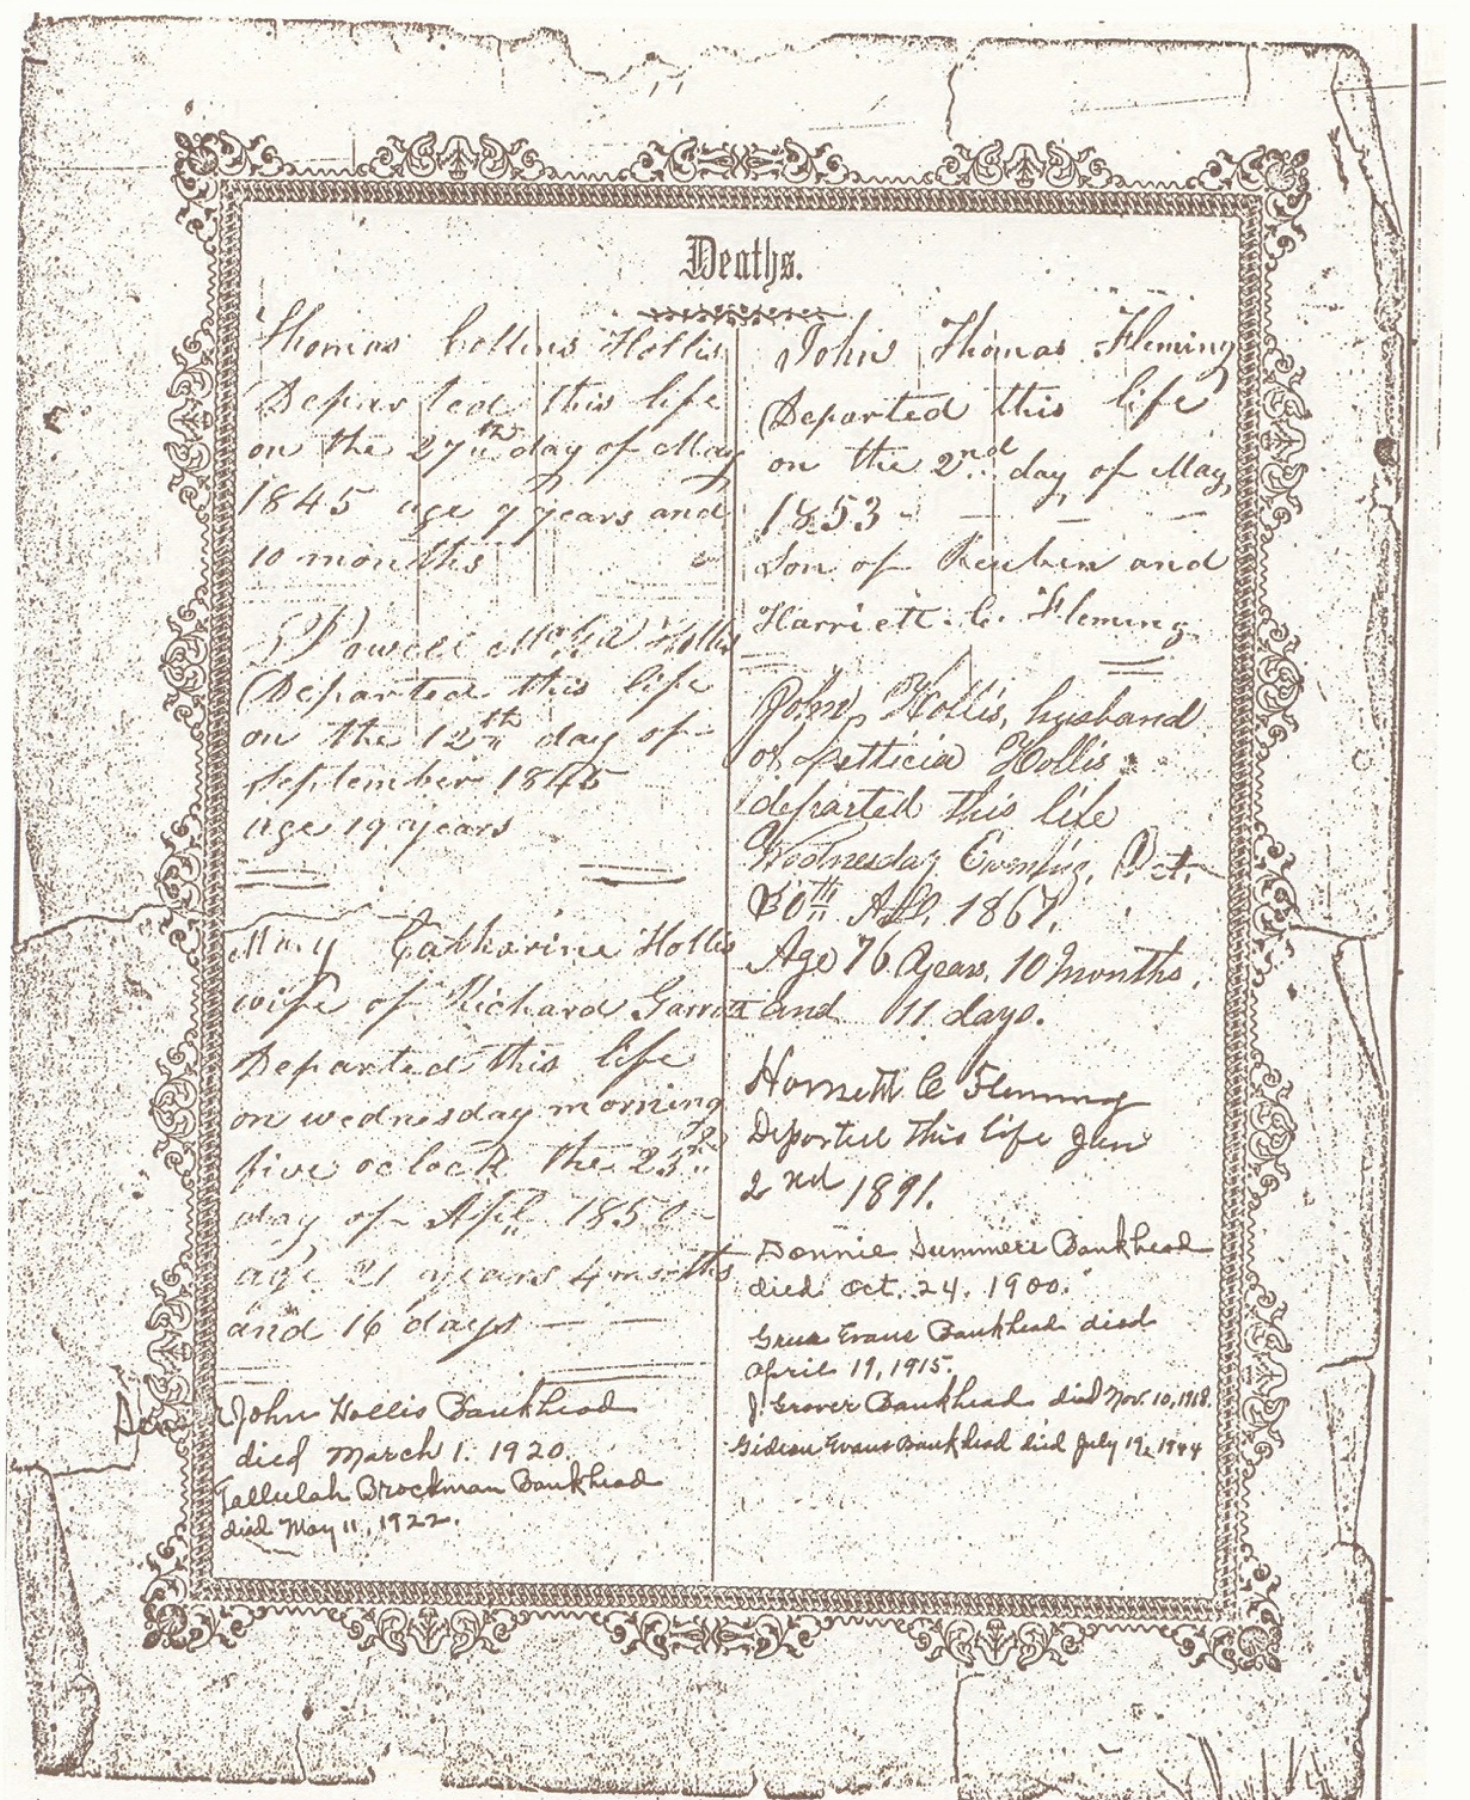 Deaths.
Thomas Collins Hollis
Departed this life
on the 27th day of May
1845 age 7 years and
10 months
Powell Hollis
Departed this life
on the 12th day of
September 1845
age 19 years
Mary Catharine Hollis
wife of Richard Garrott
Departed this life
on wednesday morning
five oclock the
day of Apl 1850
age 21 years 4 months
and 16 days
John Hollis Bankhead
died March 1. 1920.
Tallulah Brockman Bankhead
died May 11, 1922.
John Thomas Fleming
Departed this life
on the 2nd day of May,
1853
Son of Reuben and
Harriett. C. Fleming
John Hollis, husband
of Letticia Hollis
departed this life
Wednesday Evening, Oct.
30th AD, 1867,
Age 76 Years, 10 Months,
and 11 days.
Harriett C Fleming
Departed this life Jan
2nd 1891.
Summers Bankhead
died Oct. 24. 1900.
Evans Bankhead died
April 19, 1915.
J. Grover Bankhead died Nov. 10, 1918.
Gideon Evans Bankhead died July 19, 1944